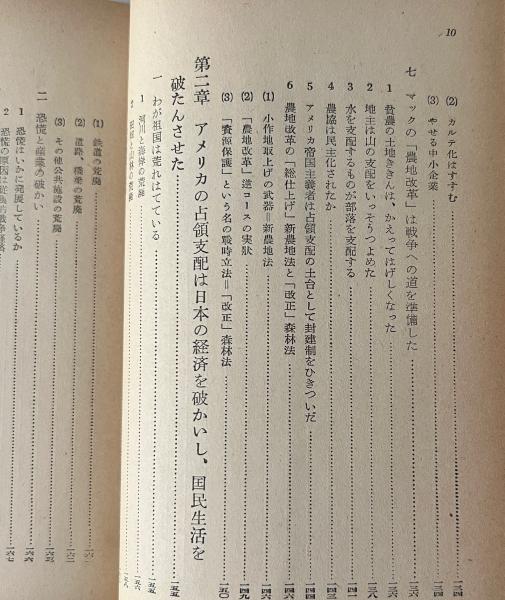 10
(2) カルテ化はすすむ……一三四
(3) やせる中小企業……一三四
七 マックの「農地改革」は戦争への道を準備した……一三六
1 貧農の土地ききんは、かえってはげしくなった……一三六
2 地主は山の支配をいっそうつよめた……一三八
3 水を支配するものが部落を支配する……一四一
4 農協は民主化されたか……一四四
5 アメリカ帝国主義者は占領支配の土台として封建制をひきついだ……一四四
6 農地改革の「総仕上げ」新農地法と「改正」森林法……一四六
(1) 小作地取上げの武器＝新農地法……一四六
(2) 「農地改革」逆コースの実状……一四九
(3) 「資源保護」という名の戦時立法＝「改正」森林法……一五〇
第二章 アメリカの占領支配は日本の経済を破かいし、国民生活を
破たんさせた……一五五
一 わが祖国は荒れはてている……一五五
1 河川と海岸の荒廃……一五六
2 山林の荒廃……一五八
(1) 鉄道の荒廃
(2) 道路、橋梁の荒廃……一六二
(3) その他公共施設の荒廃……一六三
二 恐慌と産業の破かい……一六六
1 恐慌はいかに発展しているか……一六六
2 恐慌の原因は……一六七